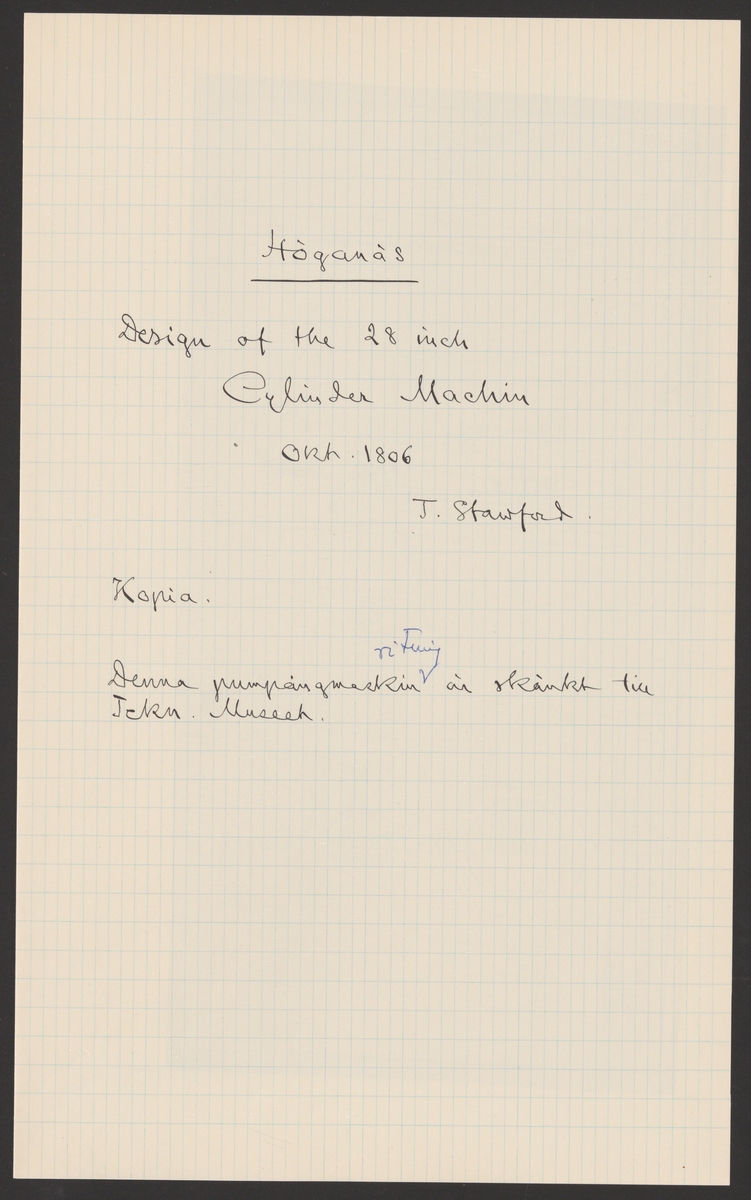 Höganäs
Design of the 28 inch
Cylinder Machin
Okt. 1806
T. Stawford.
Kopia.
ritning
Denna pumpångmaskin är skänkt till
Tekn. Museet.